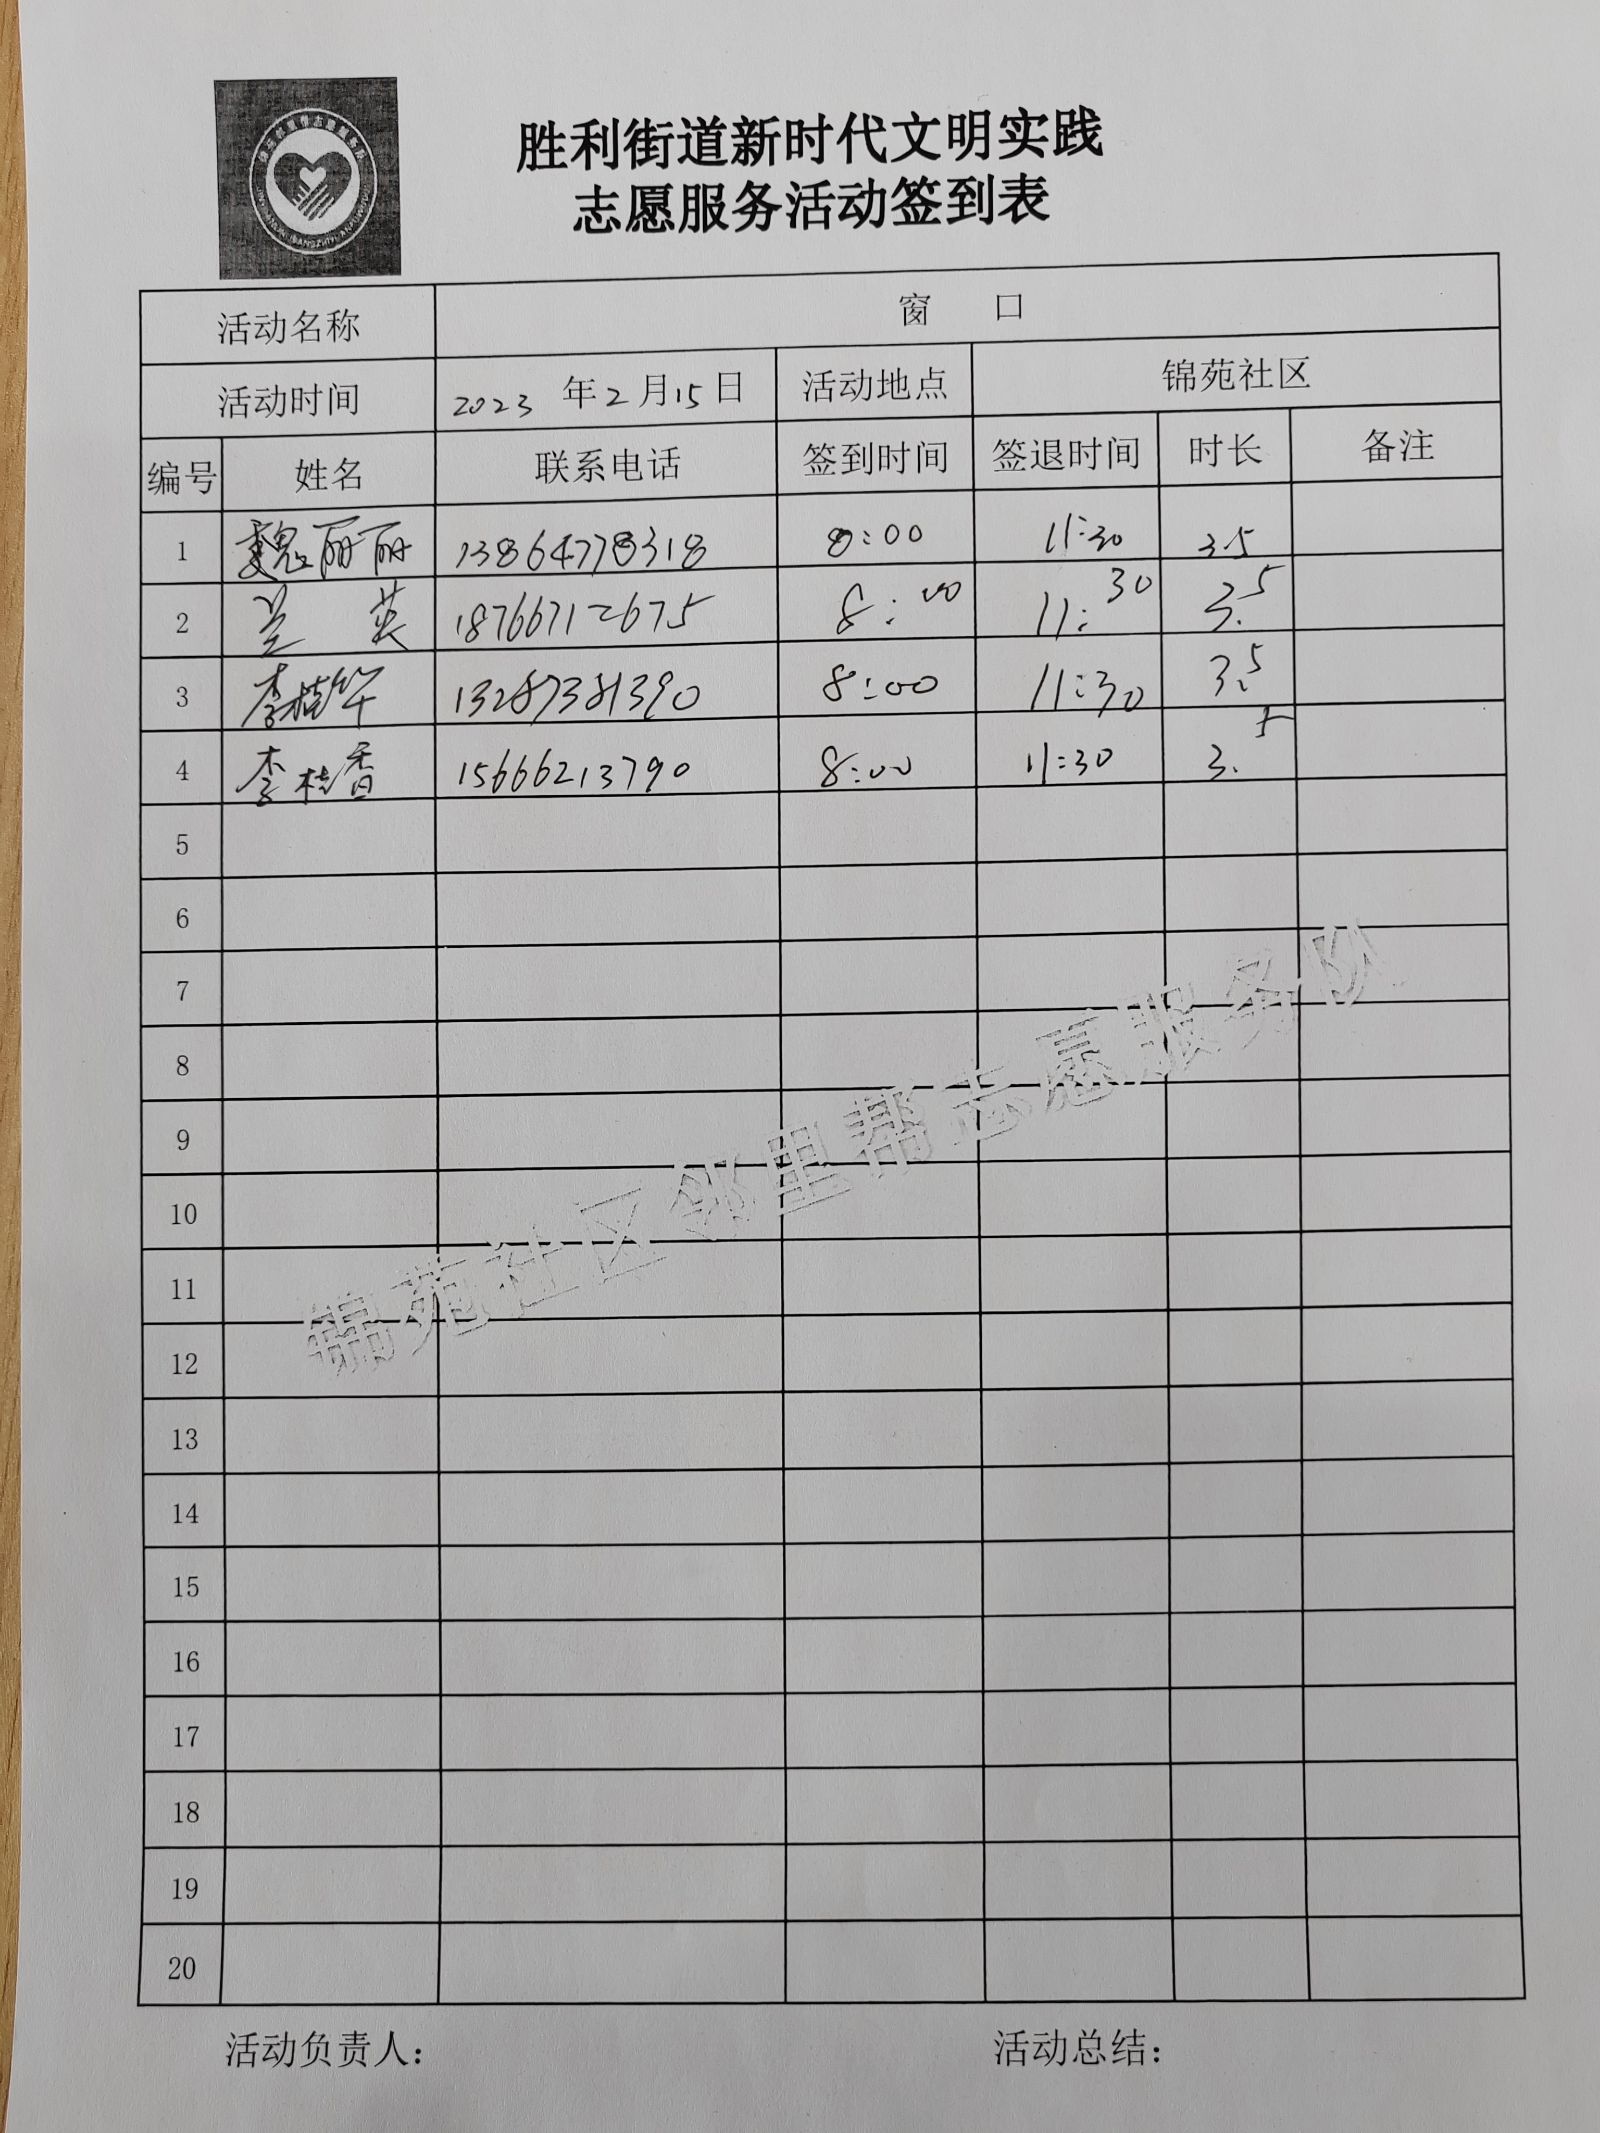 胜利街道新时代文明实践
志愿服务活动签到表
活动名称 窗 口
活动时间 2023 年2月15日 活动地点 锦苑社区
编号 姓名 联系电话 签到时间 签退时间 时长 备注
1 魏丽丽 13864778318 8:00 11:30 3.5
2 兰英 18766712675 8:00 11:30 3.5
3 李桂华 13287381390 8:00 11:30 3.5
4 李桂香 15666213790 8:00 11:30 3.5
5
6
7
8
9
10
11
12
13
14
15
16
17
18
19
20
锦苑社区邻里帮志愿服务队
活动负责人： 活动总结：